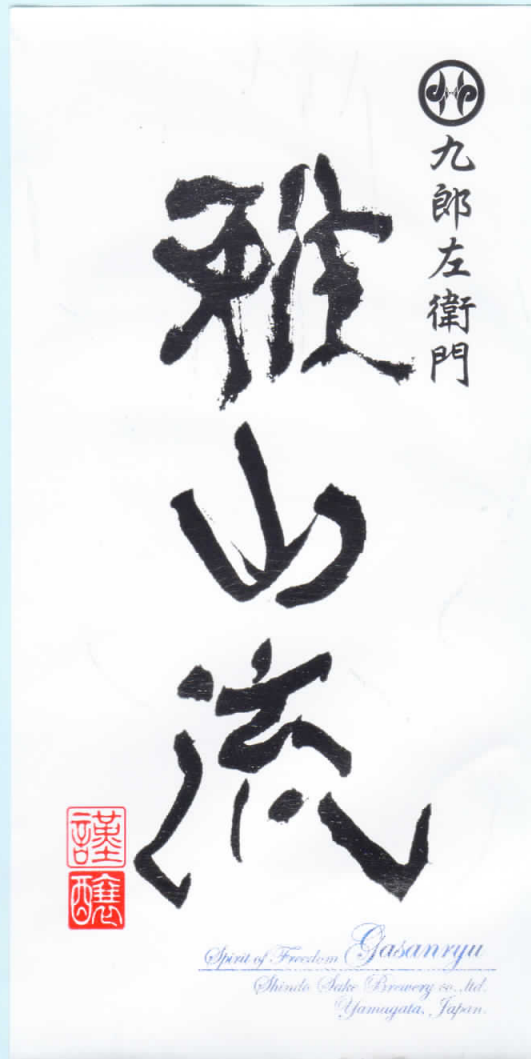 九郎左衛門
雅山流
謹
醸
Spirit of Freedom Gasanryu
Shindo Sake Brewery co.,ltd.
Yamagata, Japan.